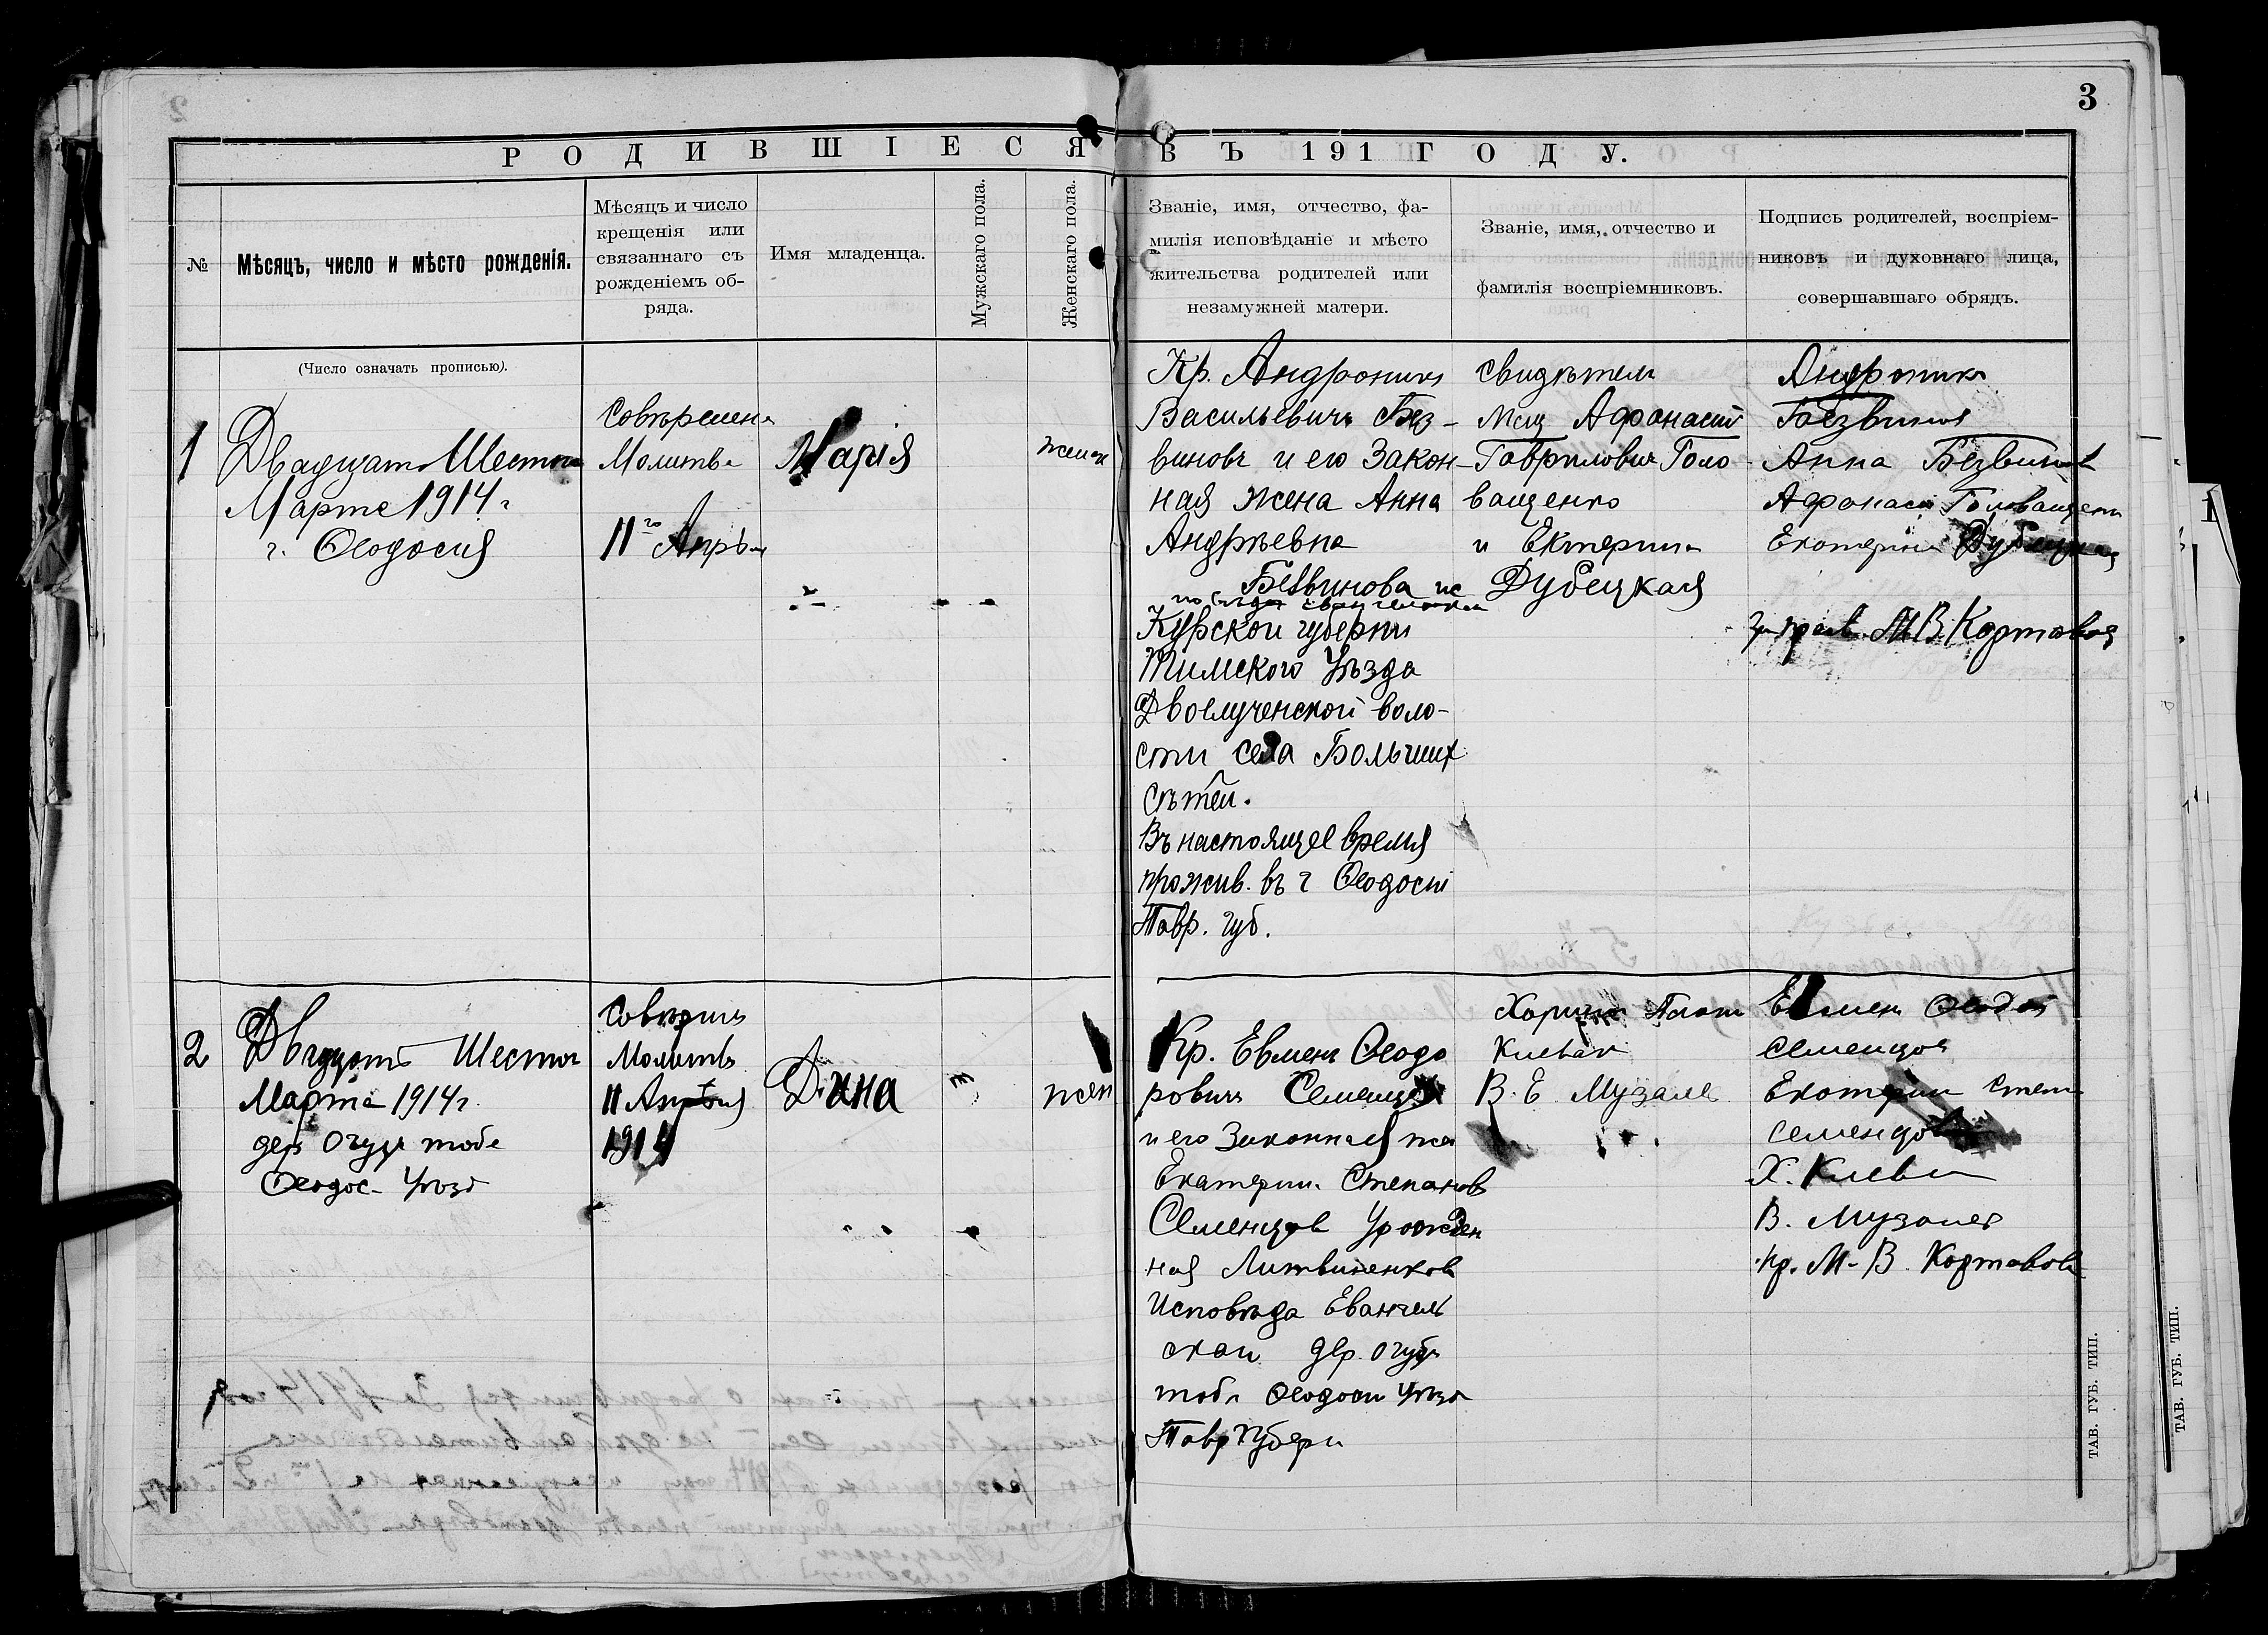 3
РОДИВШІЕСЯ ВЪ 191 ГОДУ.
№
Мѣсяцъ, число и мѣсто рожденія.
Мѣсяцъ и число
крещенія или
связаннаго съ
рожденіемъ об-
ряда.
Имя младенца.
Мужскаго пола.
Женскаго пола.
Званіе, имя, отчество, фа-
милія исповѣданіе и мѣсто
жительства родителей или
незамужней матери.
Званіе, имя, отчество и
фамилія воспріемниковъ.
Подпись родителей, воспріем-
никовъ и духовнаго лица,
совершавшаго обрядъ.
(Число означать прописью).
1
Двадцать Шестого
Марта 1914 г
г. Ѳеодосія
Совершена
Молитва
11го Апрѣля
Марія
женск
Кр. Андроникъ
Васильевичъ Без-
виновъ и его Закон-
ная жена Анна
Андрѣевна
Безвинова
Курской губерни
Тимского Уѣзда
Двоелученской воло-
сти села Большихъ
Сѣтей.
Въ настоящее время
прожив. въ г Ѳеодосіи
Тавр. губ.
свидѣтели
Мещ Афонасій
Гаврилович Голо-
ващенко
и Ектерина
Дубецкая
Андроник
Безвинов
Анна Безвинова
Афонасій Головащенко
Екатерина Дубецкая
М В Кортавов
2
Двадцать Шестого
Марта 1914 г.
дер
Ѳеодос- Уѣзд
Соверш
Молитв
11 Апрѣля
1914
жен
Кр. Евмен Ѳеодо
рович Семенцов
и его Законная же
Екатерин. Степанов
Семенцов Урожден
ная Литвиненков
Исповѣда Евангель
ской дер.
Ѳеодоси Уѣзд
Тавр Губерн
В. Е Музалев
Евмен Ѳеодор
Семенцов
Екатерин Степ
Семенцов
В. Музалев
пр. М. В. Кортавов
ТАВ. ГУБ. ТИП.
ТАВ. ГУБ. ТИП.